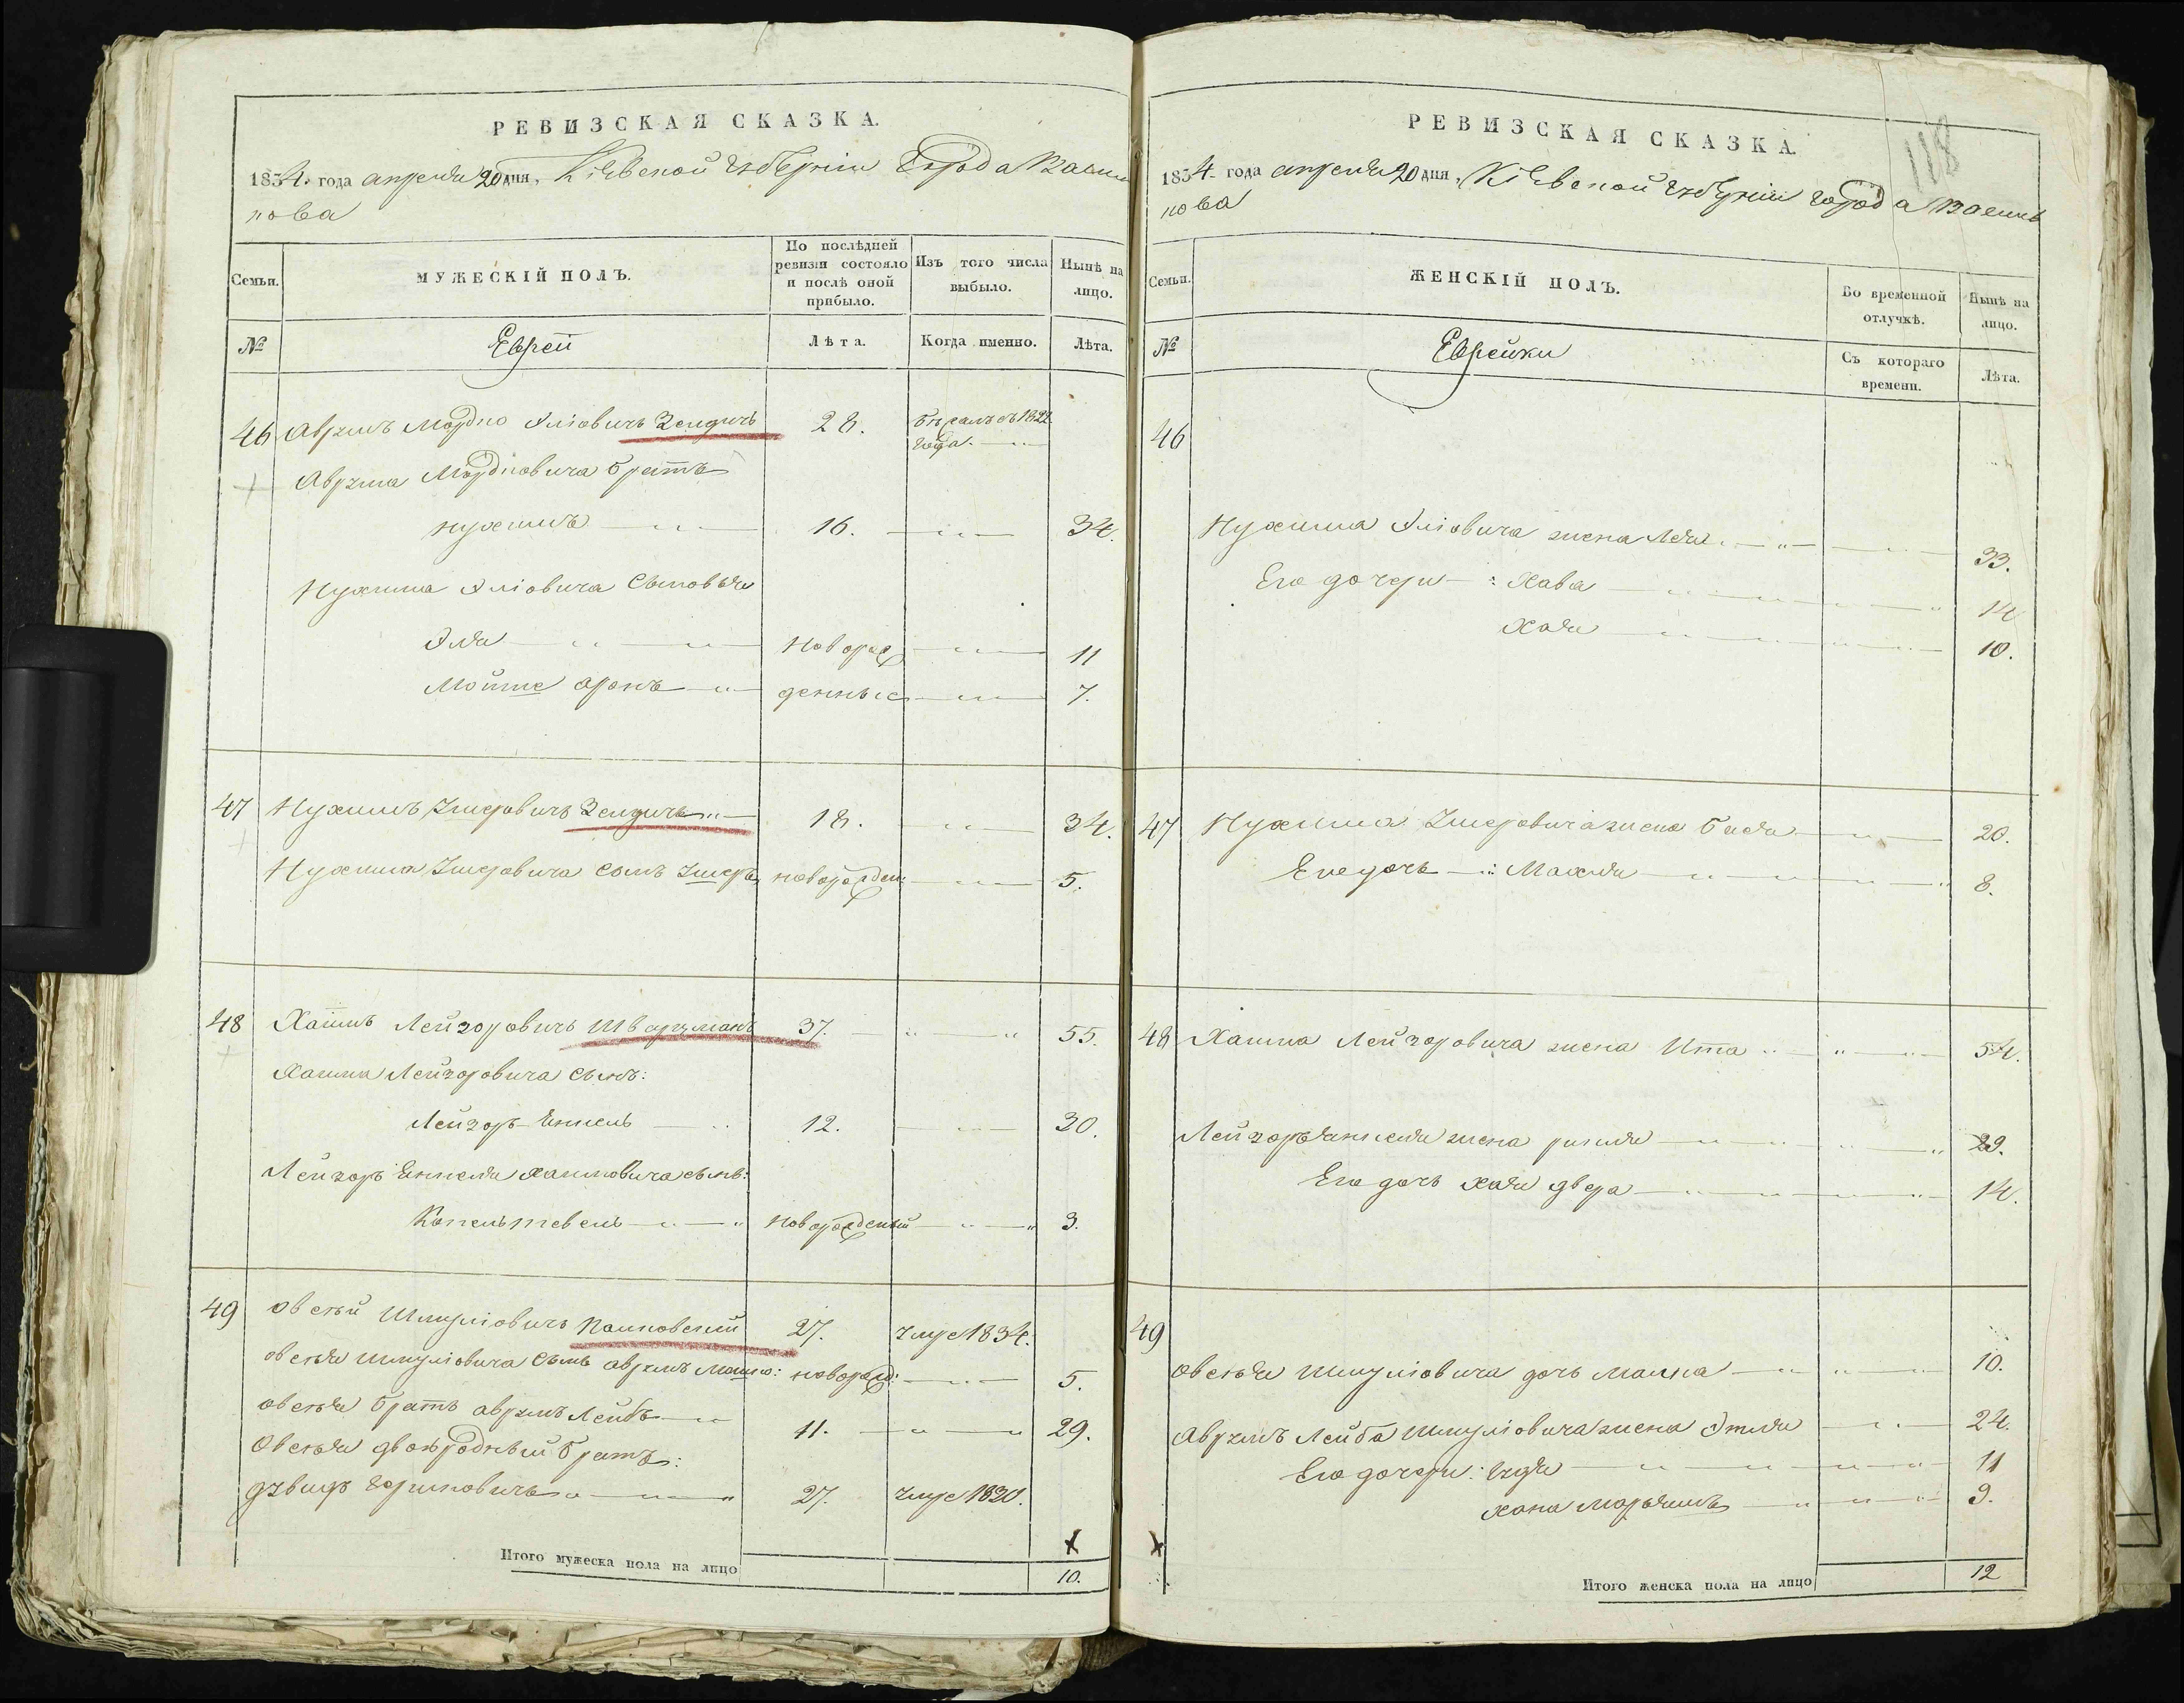 РЕВИЗСКАЯ СКАЗКА.
1834. года апреля 20 дня, Кіевской губерніи Города Василь
кова
Семьи.
МУЖЕСКІЙ ПОЛЪ.
По послѣдней ревизіи состояло и послѣ оной прибыло.
Изъ того числа выбыло.
Нынѣ на лицо.
№
Евреи
Лѣта.
Когда именно.
Лѣта.
46 Аврумъ Мордко Эліовичъ Зейдичъ 28. бѣжалъ въ 1822
года.
Аврума Мордковича братъ
Нухимъ 16. 34.
Нухима Эліовича Сыновья
Эля Новорож 11
Мойше Аронъ денные 7.
47 Нухимъ Умеровичъ Зейдичъ 18. 34.
Нухима Умеровича сынъ Умеръ новорожден: 5.
48 Хаимъ Лейзоровичъ Шварцманъ 37. 55.
Хаима Лейзоровича сынъ:
Лейзоръ Янкель 12. 30.
Лейзоръ Янкеля Хаимовича сынъ:
Копель тевель новорожденый 3.
49 Овсѣй Шмуліовичъ 27. Умре 1834.
Овсѣя Шмуліовича сынъ Аврумъ новорожд: 5.
Овсѣя братъ Аврумъ Лейбъ 11. 29.
Овсѣя двоюродный братъ:
27. Умре 1820.
х
Итого мужеска пола на лицо 10.
РЕВИЗСКАЯ СКАЗКА.
118
1834 года апреля 20 дня, Кіевской губерніи города Василь
кова
Семьи.
ЖЕНСКІЙ ПОЛЪ.
Во временной отлучкѣ.
Нынѣ на лицо.
№
Еврейки
Съ котораго времени.
Лѣта.
46
Нухима Эліовича жена Лея 33.
Его дочери: Хава 14
Хая 10.
47 Нухима Умеровича жена Бася 20.
Его дочь: Махля 8.
48 Хаима Лейзоровича жена Ита 54.
Лейзоръ Янкеля жена 29.
Его дочь Хая двера 14.
49
Овсѣя Шмуліовича дочь Малка 10.
Аврумъ Лейба Шмуліовича жена Этля 24.
Его дочери: 11
Хана Марьямъ 9.
х
Итого женска пола на лицо 12